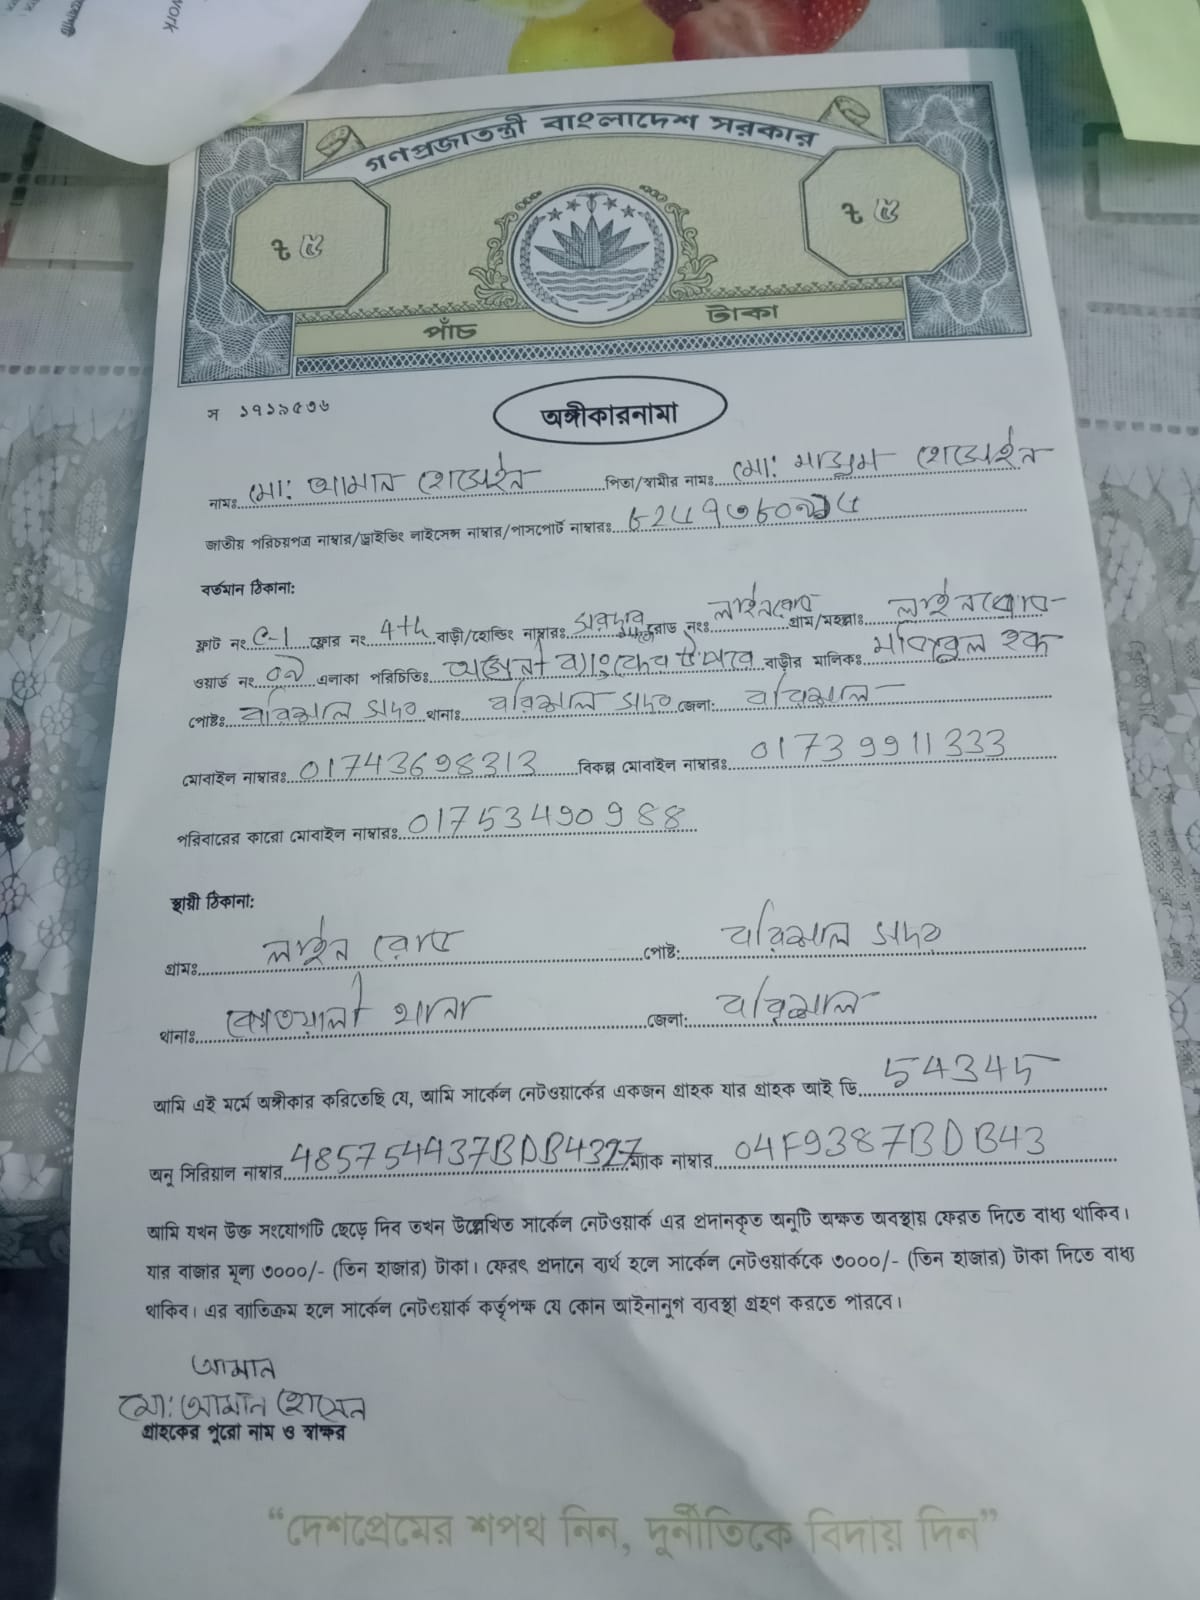 গণপ্রজাতন্ত্রী বাংলাদেশ সরকার
৳ ৫ ৳ ৫
পাঁচ টাকা
স ১৭১৯৫৩৬
অঙ্গীকারনামা
নামঃ মো: আমান হোসেইন পিতা/স্বামীর নামঃ মো: মাসুম হোসেইন
জাতীয় পরিচয়পত্র নাম্বার/ড্রাইভিং লাইসেন্স নাম্বার/পাসপোর্ট নাম্বারঃ
বর্তমান ঠিকানা:
ফ্লাট নং C-1 ফ্লোর নং 4th বাড়ী/হোল্ডিং নাম্বারঃ রোড নংঃ লাইনরোড গ্রাম/মহল্লাঃ লাইনরোড
ওয়ার্ড নং ০৯ এলাকা পরিচিতিঃ ব্যাংকের উপরে বাড়ীর মালিকঃ হক
পোষ্টঃ বরিশাল সদর থানাঃ বরিশাল সদর জেলা: বরিশাল
মোবাইল নাম্বারঃ 01743698313 বিকল্প মোবাইল নাম্বারঃ 01739911333
পরিবারের কারো মোবাইল নাম্বারঃ 01753490988
স্থায়ী ঠিকানা:
গ্রামঃ লাইন রোড পোষ্ট: বরিশাল সদর
থানাঃ কোতয়ালী থানা জেলা: বরিশাল
আমি এই মর্মে অঙ্গীকার করিতেছি যে, আমি সার্কেল নেটওয়ার্কের একজন গ্রাহক যার গ্রাহক আই ডি 54345
অনু সিরিয়াল নাম্বার 485754437BDB4327 ম্যাক নাম্বার 04F9387BDB43
আমি যখন উক্ত সংযোগটি ছেড়ে দিব তখন উল্লেখিত সার্কেল নেটওয়ার্ক এর প্রদানকৃত অনুটি অক্ষত অবস্থায় ফেরত দিতে বাধ্য থাকিব।
যার বাজার মূল্য ৩০০০/- (তিন হাজার) টাকা। ফেরৎ প্রদানে ব্যর্থ হলে সার্কেল নেটওয়ার্ককে ৩০০০/- (তিন হাজার) টাকা দিতে বাধ্য
থাকিব। এর ব্যাতিক্রম হলে সার্কেল নেটওয়ার্ক কর্তৃপক্ষ যে কোন আইনানুগ ব্যবস্থা গ্রহণ করতে পারবে।
আমান
মো: আমান হোসেন
গ্রাহকের পুরো নাম ও স্বাক্ষর
“দেশপ্রেমের শপথ নিন, দুর্নীতিকে বিদায় দিন”